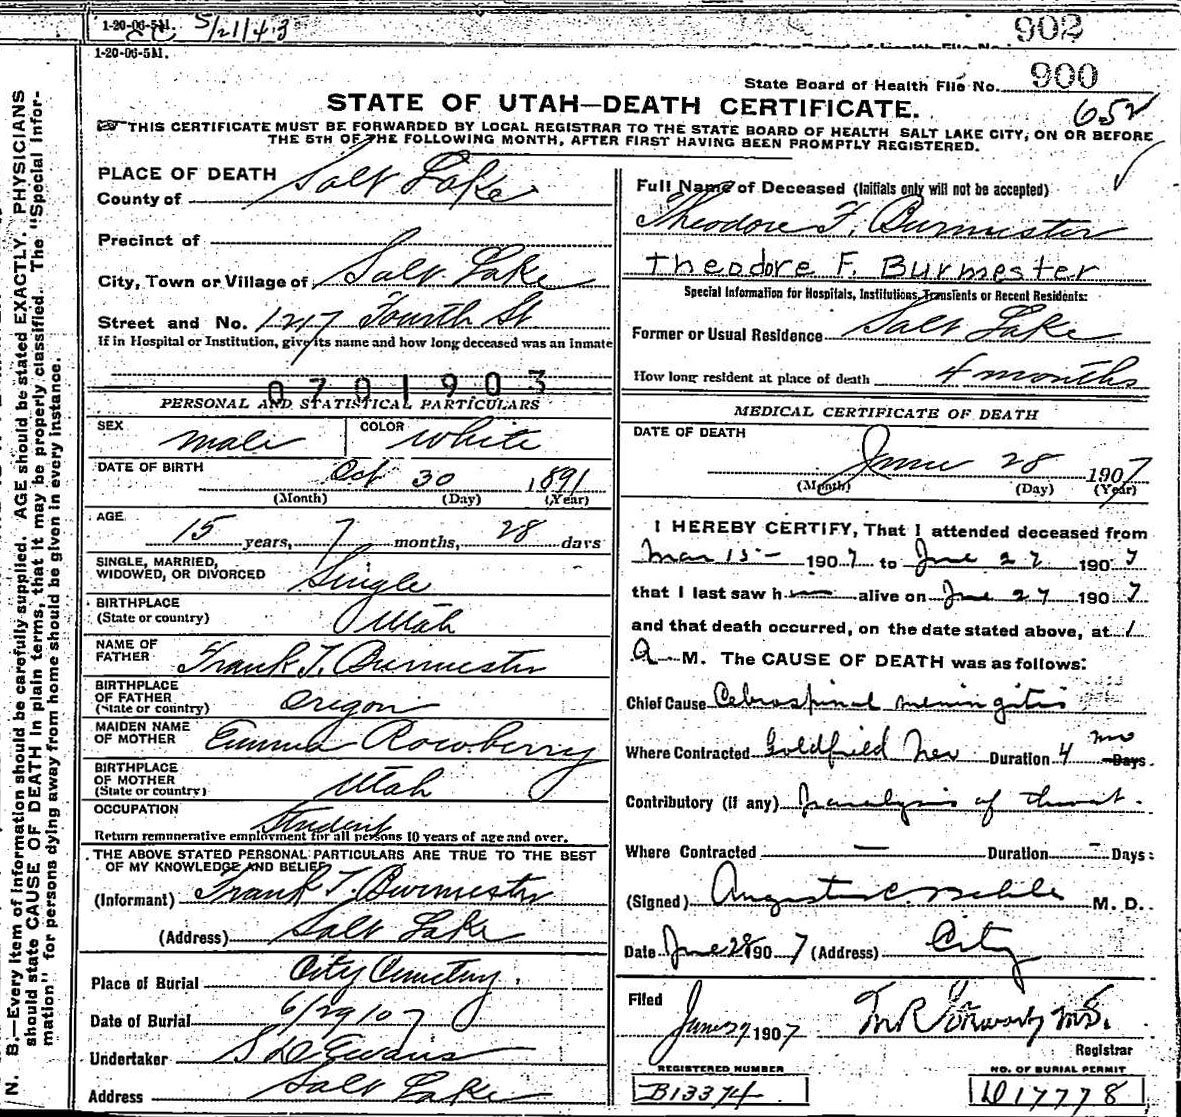 1-20-06-5M. 5/21/43
902
1-20-06-5M.
State Board of Health File No. 900
STATE OF UTAH—DEATH CERTIFICATE.
652
THIS CERTIFICATE MUST BE FORWARDED BY LOCAL REGISTRAR TO THE STATE BOARD OF HEALTH SALT LAKE CITY, ON OR BEFORE
THE 5TH OF THE FOLLOWING MONTH, AFTER FIRST HAVING BEEN PROMPTLY REGISTERED.
N. B.—Every item of information should be carefully supplied. AGE should be stated EXACTLY. PHYSICIANS
should state CAUSE OF DEATH in plain terms, that it may be properly classified. The "Special Infor-
mation" for persons dying away from home should be given in every instance.
PLACE OF DEATH
County of Salt Lake
Precinct of
City, Town or Village of Salt Lake
Street and No. 1217 Fourth St
If in Hospital or Institution, give its name and how long deceased was an inmate
0701903
PERSONAL AND STATISTICAL PARTICULARS
SEX male COLOR White
DATE OF BIRTH Oct 30 1891
(Month) (Day) (Year)
AGE
15 years, 7 months, 28 days
SINGLE, MARRIED,
WIDOWED, OR DIVORCED Single
BIRTHPLACE
(State or country) Utah
NAME OF
FATHER Frank T. Burmester
BIRTHPLACE
OF FATHER
(State or country) Oregon
MAIDEN NAME
OF MOTHER Emma Rowberry
BIRTHPLACE
OF MOTHER
(State or country) Utah
OCCUPATION
Student
Return remunerative employment for all persons 10 years of age and over.
THE ABOVE STATED PERSONAL PARTICULARS ARE TRUE TO THE BEST
OF MY KNOWLEDGE AND BELIEF
(Informant) Frank T. Burmester
(Address) Salt Lake
Place of Burial City Cemetery.
Date of Burial 6/29/07
Undertaker S D Evans
Address Salt Lake
Full Name of Deceased (Initials only will not be accepted)
Theodore F. Burmester
Theodore F. Burmester
Special Information for Hospitals, Institutions, Transients or Recent Residents:
Former or Usual Residence Salt Lake
How long resident at place of death 4 months
MEDICAL CERTIFICATE OF DEATH
DATE OF DEATH
June 28 1907
(Month) (Day) (Year)
I HEREBY CERTIFY, That I attended deceased from
Mar 15 - 1907 to June 27 1907
that I last saw h alive on June 27 1907
and that death occurred, on the date stated above, at 1
A M. The CAUSE OF DEATH was as follows:
Chief Cause Cebrospinal meningitis
Where Contracted Goldfield Nev Duration 4 mo Days.
Contributory (if any) Paralysis of throat.
Where Contracted — Duration - Days:
(Signed) M. D.
Date June 28 1907 (Address) City
Filed
June 29 1907 M.D.
Registrar
REGISTERED NUMBER
B13374
NO. OF BURIAL PERMIT
D17778